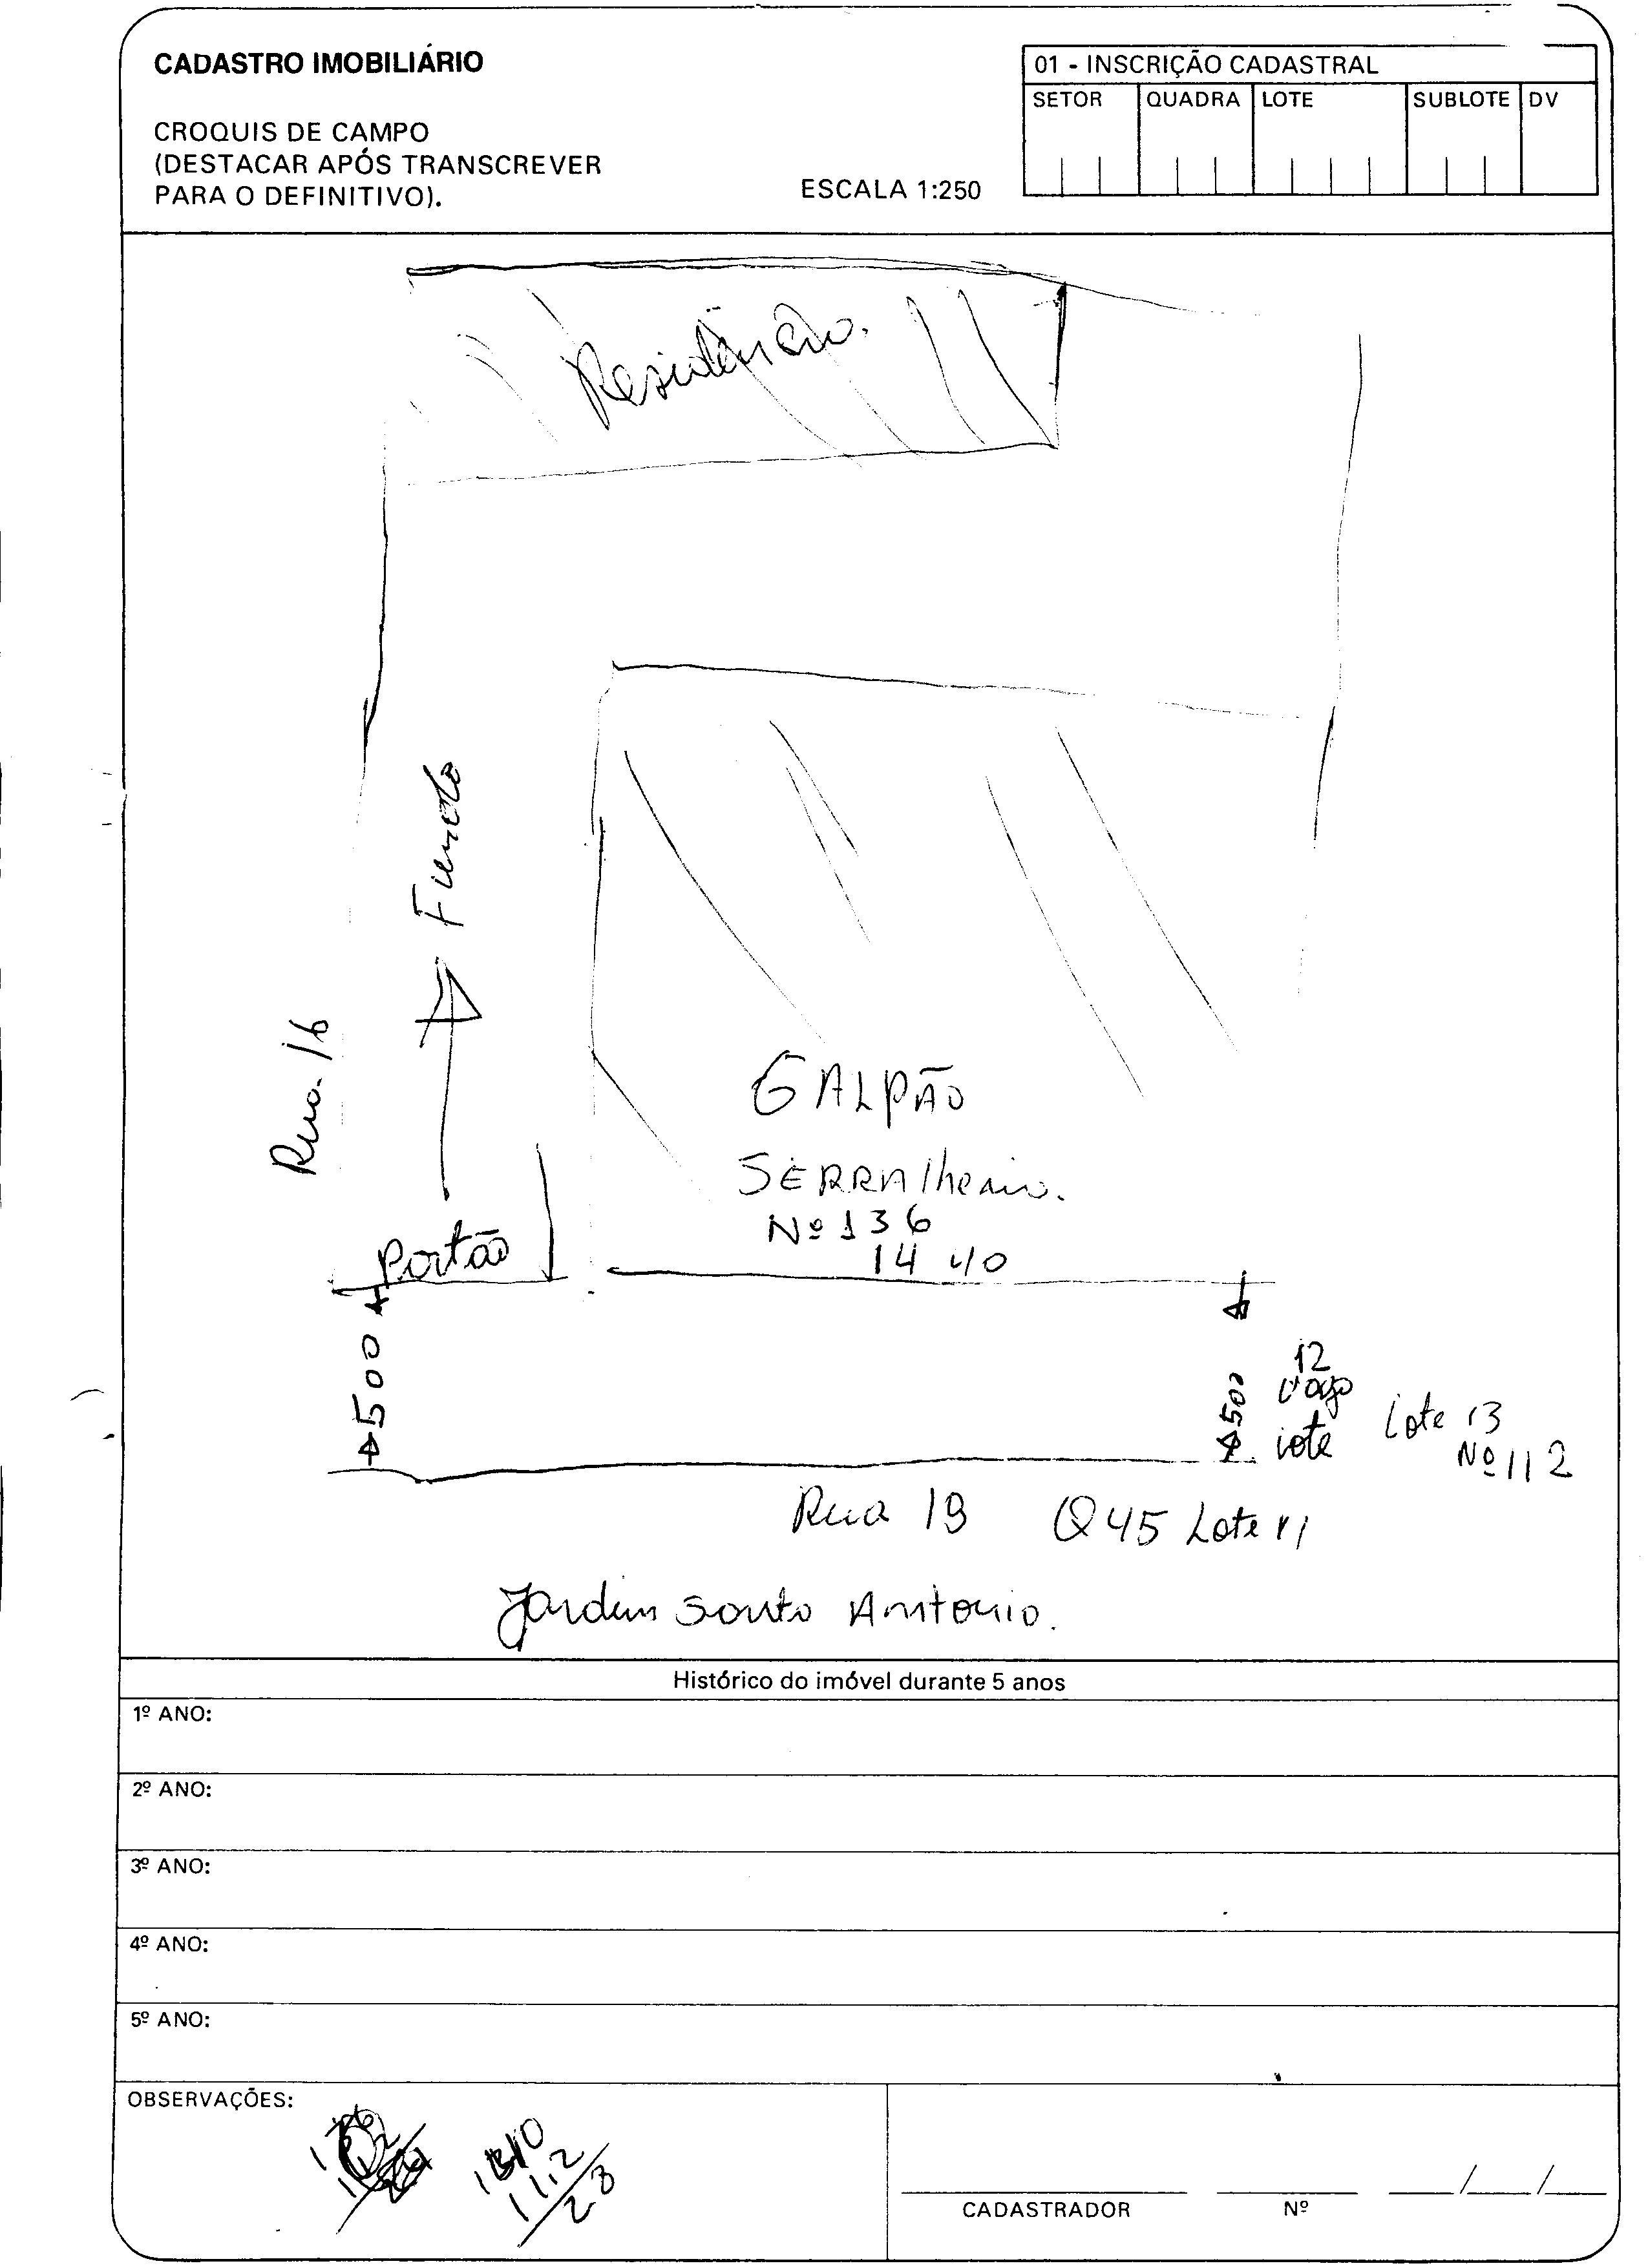 CADASTRO IMOBILIÁRIO
CROQUIS DE CAMPO
(DESTACAR APÓS TRANSCREVER
PARA O DEFINITIVO).
ESCALA 1:250
01 - INSCRIÇÃO CADASTRAL
SETOR QUADRA LOTE SUBLOTE DV
Residência.
Fundo
Rua 16
GALPÃO
SERRAlheria.
Nº 136
14 40
Portão
500
500
12
vago
lote
Lote 13
Nº 112
Rua 19 Q45 Lote 11
Jardim Santo Antonio.
Histórico do imóvel durante 5 anos
1º ANO:
2º ANO:
3º ANO:
4º ANO:
5º ANO:
OBSERVAÇÕES:
112
23
CADASTRADOR Nº